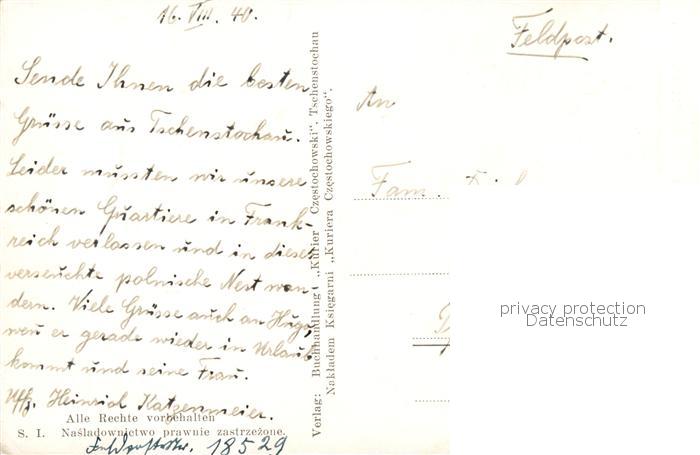 16. VIII. 40.
Sende Ihnen die besten
Grüsse aus Tschenstochau.
Leider mussten wir unsere
schönen Quartiere in Frank-
reich verlassen und in dieses
verseuchte polnische Nest wan-
dern. Viele Grüsse auch an Hugo,
wen er gerade wieder in Urlaub
kommt und seine Frau.
Uffz. Heinrich Katzenmeier.
Alle Rechte vorbehalten
S. I. Naśladownictwo prawnie zastrzeżone.
Feldpostnr. 18529
Verlag: Buchhandlung „Kurier Częstochowski“, Tschenstochau
Nakładem Księgarni „Kuriera Częstochowskiego“.
Feldpost.
An
Fam.
privacy protection
Datenschutz